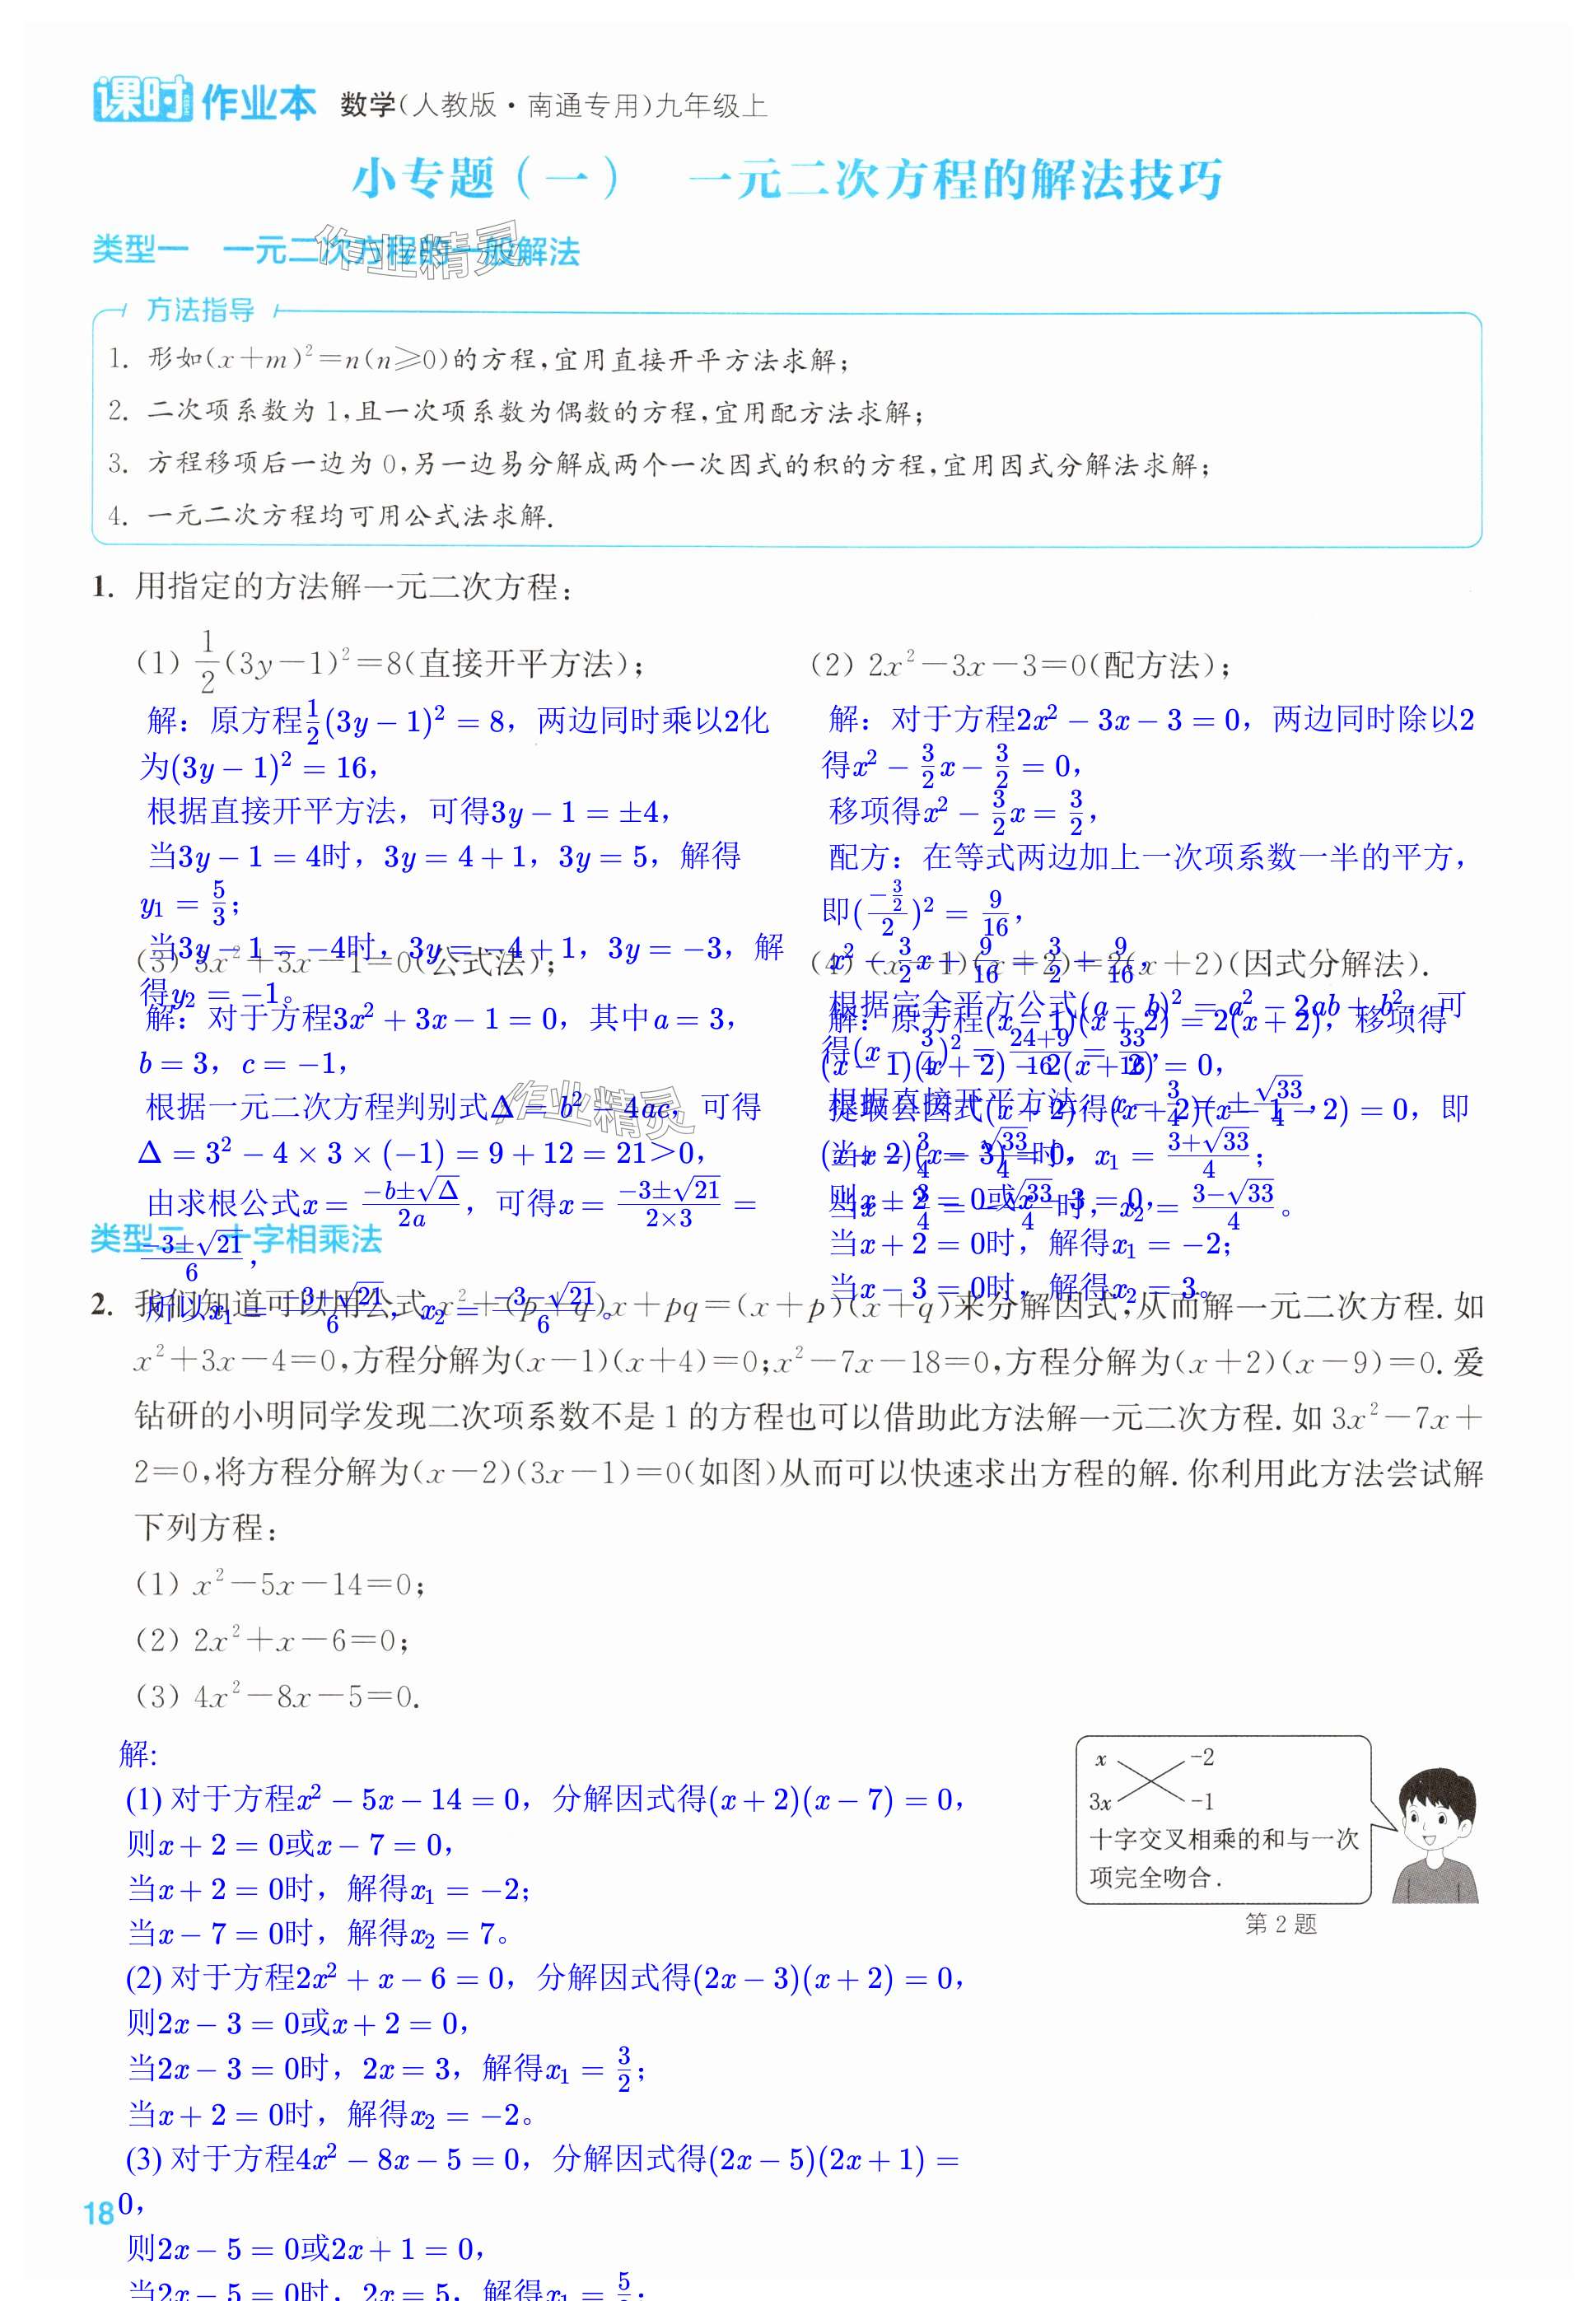 课时作业本 数学(人教版·南通专用)九年级上
小专题(一) 一元二次方程的解法技巧
类型一 一元二次方程的一般解法
作业精灵
方法指导
1. 形如(x+m)²=n(n≥0)的方程,宜用直接开平方法求解;
2. 二次项系数为1,且一次项系数为偶数的方程,宜用配方法求解;
3. 方程移项后一边为0,另一边易分解成两个一次因式的积的方程,宜用因式分解法求解;
4. 一元二次方程均可用公式法求解.
1. 用指定的方法解一元二次方程:
(1) 1/2(3y-1)²=8(直接开平方法);
解：原方程1/2(3y-1)²=8，两边同时乘以2化
为(3y-1)²=16，
根据直接开平方法，可得3y-1=±4，
当3y-1=4时，3y=4+1，3y=5，解得
y₁=5/3；
当3y-1=-4时，3y=-4+1，3y=-3，解
得y₂=-1。
(2) 2x²-3x-3=0(配方法);
解：对于方程2x²-3x-3=0，两边同时除以2
得x²-3/2x-3/2=0，
移项得x²-3/2x=3/2，
配方：在等式两边加上一次项系数一半的平方，
即((-3/2)/2)²=9/16，
x²-3/2x+9/16=3/2+9/16，
根据完全平方公式(a-b)²=a²-2ab+b²，可
得(x-3/4)²=(24+9)/16=33/16，
根据直接开平方法，x-3/4=±√33/4，
当x-3/4=√33/4时，x₁=(3+√33)/4；
当x-3/4=-√33/4时，x₂=(3-√33)/4。
(3) 3x²+3x-1=0(公式法);
解：对于方程3x²+3x-1=0，其中a=3，
b=3，c=-1，
根据一元二次方程判别式Δ=b²-4ac，可得
Δ=3²-4×3×(-1)=9+12=21>0，
由求根公式x=(-b±√Δ)/2a，可得x=(-3±√21)/(2×3)=
(-3±√21)/6，
所以x₁=(-3+√21)/6，x₂=(-3-√21)/6。
(4) (x-1)(x+2)=2(x+2)(因式分解法).
解：原方程(x-1)(x+2)=2(x+2)，移项得
(x-1)(x+2)-2(x+2)=0，
提取公因式(x+2)得(x+2)(x-1-2)=0，即
(x+2)(x-3)=0，
则x+2=0或x-3=0，
当x+2=0时，解得x₁=-2；
当x-3=0时，解得x₂=3。
作业精灵
类型二 十字相乘法
2. 我们知道可以用公式x²+(p+q)x+pq=(x+p)(x+q)来分解因式,从而解一元二次方程.如
x²+3x-4=0,方程分解为(x-1)(x+4)=0;x²-7x-18=0,方程分解为(x+2)(x-9)=0.爱
钻研的小明同学发现二次项系数不是1的方程也可以借助此方法解一元二次方程.如3x²-7x+
2=0,将方程分解为(x-2)(3x-1)=0(如图)从而可以快速求出方程的解.你利用此方法尝试解
下列方程:
(1) x²-5x-14=0;
(2) 2x²+x-6=0;
(3) 4x²-8x-5=0.
解:
(1) 对于方程x²-5x-14=0，分解因式得(x+2)(x-7)=0，
则x+2=0或x-7=0，
当x+2=0时，解得x₁=-2；
当x-7=0时，解得x₂=7。
(2) 对于方程2x²+x-6=0，分解因式得(2x-3)(x+2)=0，
则2x-3=0或x+2=0，
当2x-3=0时，2x=3，解得x₁=3/2；
当x+2=0时，解得x₂=-2。
(3) 对于方程4x²-8x-5=0，分解因式得(2x-5)(2x+1)=
0，
则2x-5=0或2x+1=0，
当2x-5=0时，2x=5，解得x₁=
x -2
3x -1
十字交叉相乘的和与一次
项完全吻合.
第2题
18